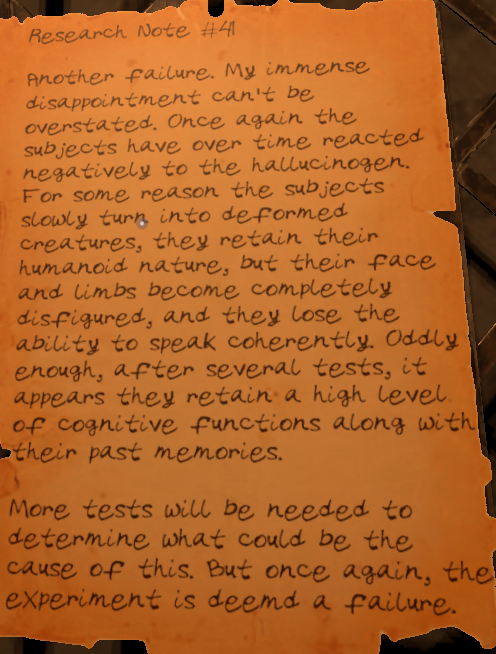 Research Note #41
Another failure. My immense
disappointment can't be
overstated. Once again the
subjects have over time reacted
negatively to the hallucinogen.
For some reason the subjects
slowly turn into deformed
creatures, they retain their
humanoid nature, but their face
and limbs become completely
disfigured, and they lose the
ability to speak coherently. Oddly
enough, after several tests, it
appears they retain a high level
of cognitive functions along with
their past memories.
More tests will be needed to
determine what could be the
cause of this. But once again, the
experiment is deemd a failure.